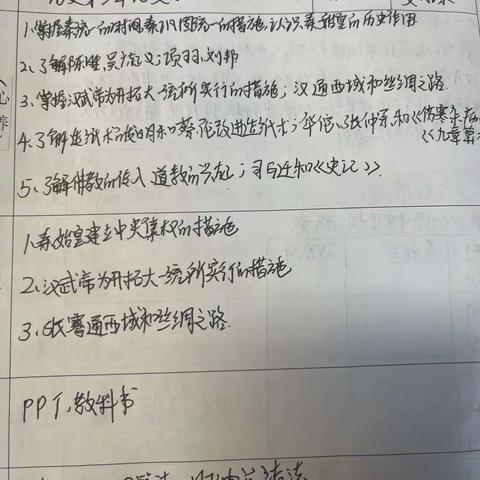 1、掌握秦统一的时间、秦巩固统一的措施、认识秦始皇的历史作用
2、了解陈胜吴广起义；项羽、刘邦
3、掌握汉武帝为开拓大一统所实行的措施；汉通西域和丝绸之路.
4、了解造纸术的发明和蔡伦改进造纸术；华佗、张仲景和《伤寒杂病
《九章算
5、了解佛教的传入 道教的兴起；司马迁和《史记》.
心
养
1、秦始皇建立中央集权的措施
2、汉武帝为开拓大一统所实行的措施
3、张骞通西域和丝绸之路.
PPT、教科书